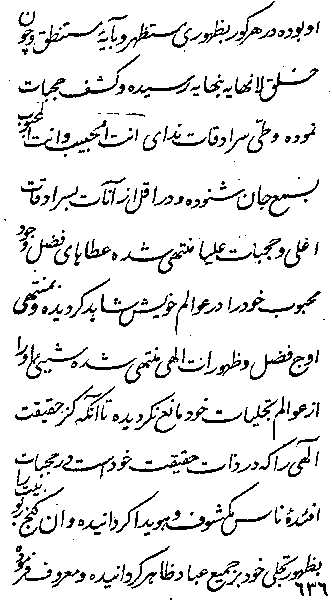 او بوده در هر کور بظهوری مستظهر و بآیه مستنطق و چون
خلق لانهایه بنهایه رسیده و کشف حجبات
نموده و طی سرادقات ندای انت الحبیب و انت المحبوب
بسمع جان شنوده و در اقل از آنات بسرادقات
اعلی و حجبات علیا منتهی شده عطاهای فضل وجود
محبوب خود را در عوالم خویش مشاهد کردیده و بمنتهی
اوج فضل و ظهورات الهی منتهی شده شیئی او را
از عوالم تجلیات خود مانع نکردیده تا آنکه کنز حقیقت
الهی را که در ذات حقیقت خود مست در حجبات
افئدهٔ ناس مکشوف و هویدا کردانیده و ان کنج
بظهور تجلی خود بر جمیع عباد ظاهر کردانیده و معروف فرموده
۶۳۶